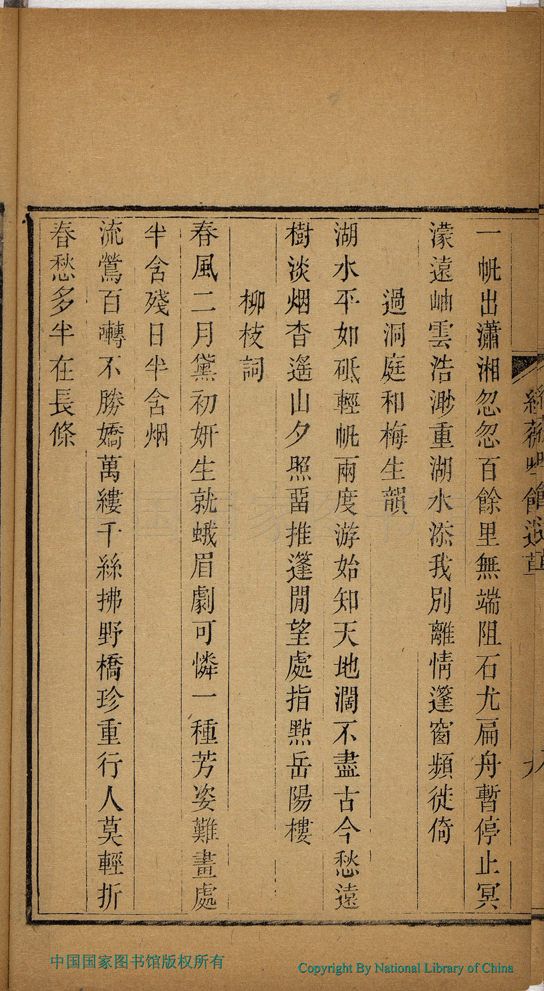 一帆出瀟湘忽忽百餘里無端阻石尤扁舟暫停止冥
濛遠岫雲浩渺重湖水添我別離情篷窗頻徙倚
過洞庭和梅生韻
湖水平如砥輕帆兩度游始知天地濶不盡古今愁遠
樹淡烟杳遙山夕照畱推篷閒望處指㸃岳陽樓
柳枝詞
春風二月黛初妍生就蛾眉劇可憐一種芳姿難畫處
半含殘日半含烟
流鶯百囀不勝嬌萬縷千絲拂野橋珍重行人莫輕折
春愁多半在長條
中国国家图书馆版权所有
Copyright By National Library of China